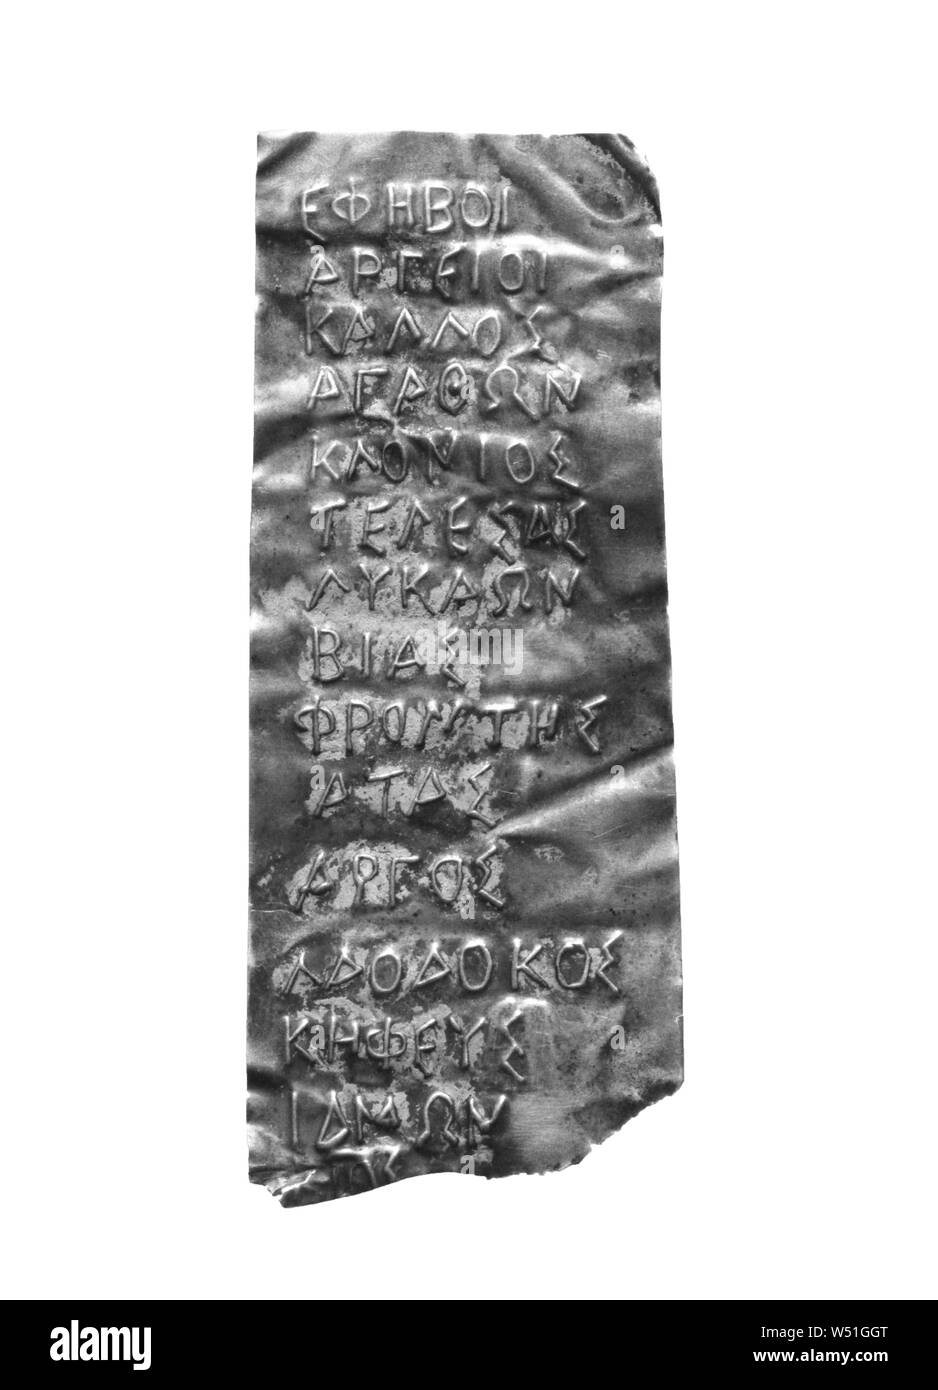 ΕΦΗΒΟΙ
ΑΡΓΕΙΟΙ
ΚΑΛΛΟΣ
ΑΓΑΘΩΝ
ΚΛΟΝΙΟΣ
ΤΕΛΕΣΑΣ
ΛΥΚΑΩΝ
ΒΙΑΣ
ΦΡΟΝΤΗΣ
ΑΤΑΣ
ΑΡΓΟΣ
ΛΑΟΔΟΚΟΣ
ΚΗΦΕΥΣ
ΙΔΜΩΝ
a
a
a
a
alamy
alamy
Image ID: W51GGT
www.alamy.com